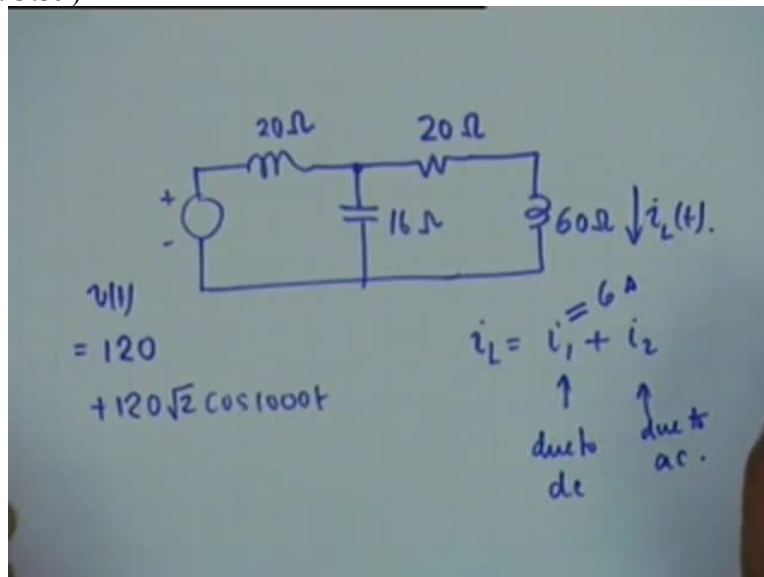 20Ω 20Ω
+
-
16Ω
60Ω ↓ i_L(t).
v(t)
= 120
+120√2 cos1000t
= 6 A
i_L = i_1 + i_2
↑ ↑
due to due to
dc ac.